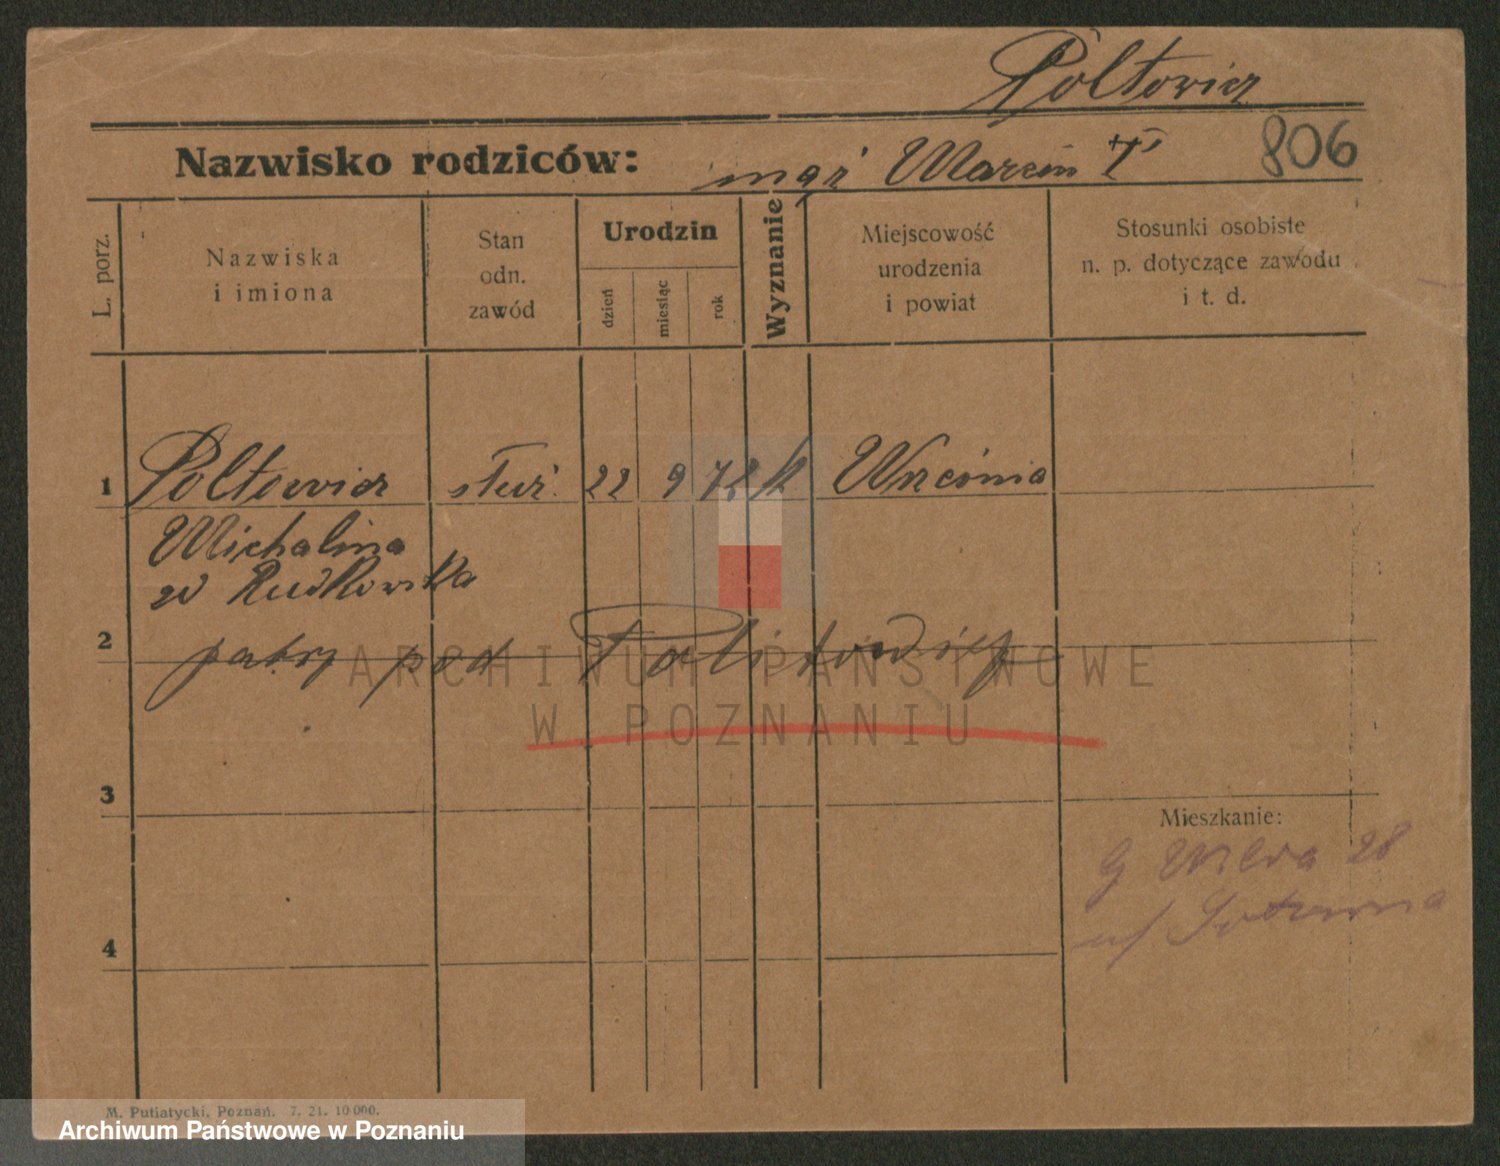 Połtowicz
Nazwisko rodziców: mąż Marcin † 806
L. porz.
Nazwiska
i imiona
Stan
odn.
zawód
Urodzin
dzień
miesiąc
rok
Wyznanie
Miejscowość
urodzenia
i powiat
Stosunki osobiste
n. p. dotyczące zawodu
i t. d.
1 Połtowicz służ. 22 9 72 k Września
Michalina
zd Rudkowska
2 patrz pod Politowicz
ARCHIWUM PAŃSTWOWE
W POZNANIU
3
Mieszkanie:
G Wilda 28
4
M. Putiatycki, Poznań. 7. 21. 10 000.
Archiwum Państwowe w Poznaniu